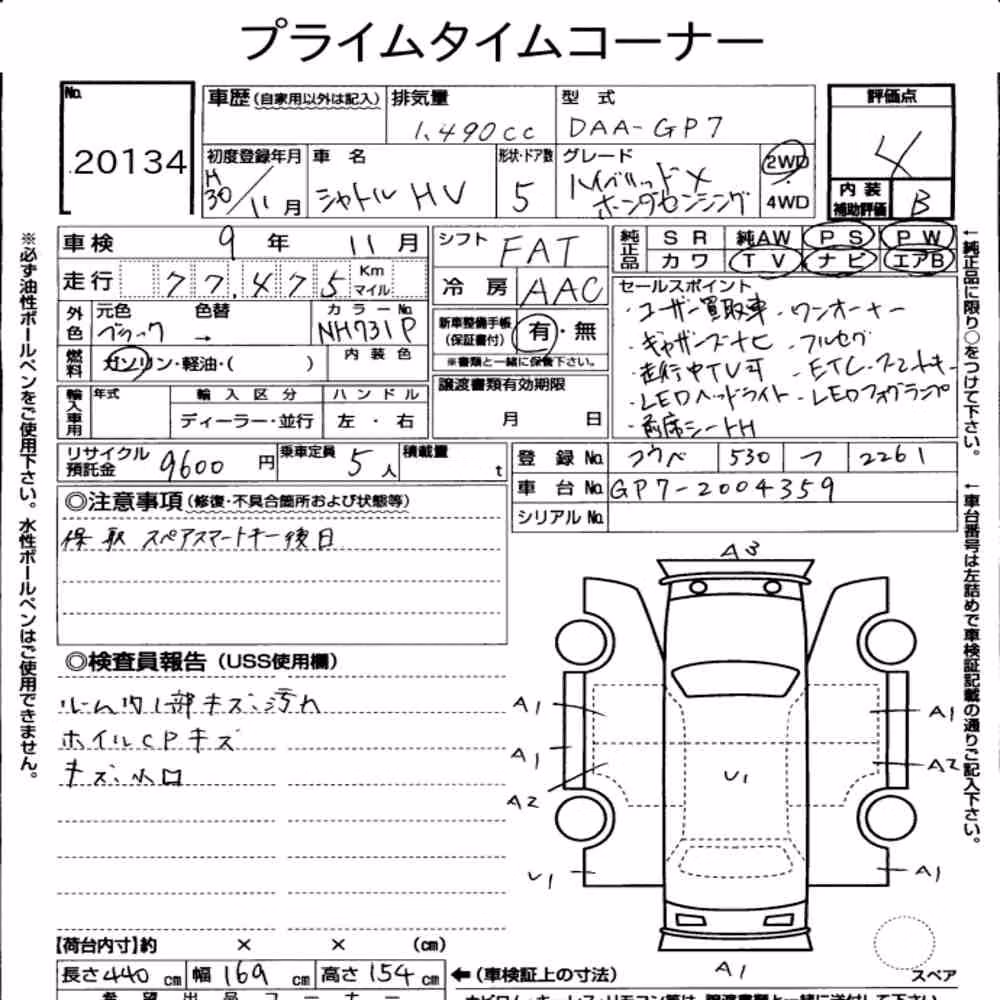 プライムタイムコーナー
No. 20134
車歴(自家用以外は記入) 排気量 1.490cc 型式 DAA-GP7
評価点 4
内装補助評価 B
初度登録年月 H30/11月 車名 シャトル HV 形状・ドア数 5 グレード ハイブリッドX ホンダセンシング 2WD・4WD
車検 9年 11月
走行 77,475 Km マイル
シフト FAT
冷房 AAC
純正品 SR 純AW PS PW
カワ TV ナビ エアB
外色 元色 ブラック 色替 → カラーNo. NH731P
燃料 ガソリン・軽油・( ) 内装色
新車整備手帳(保証書付) 有・無
※書類と一緒に保管下さい。
譲渡書類有効期限 月 日
輸入車用 年式 輸入区分 ハンドル
ディーラー・並行 左・右
セールスポイント
・ユーザー買取車・ワンオーナー
・ギャザーズナビ・フルセグ
・走行中TV可・ETC・スマートキー
・LEDヘッドライト・LEDフォグランプ
・前席シートH
リサイクル預託金 9600円 乗車定員 5人 積載量 t
登録No. コウベ 530 フ 2261
車台No. GP7-2004359
シリアルNo.
◎注意事項(修復・不具合箇所および状態等)
保取 スペアスマートキー後日
◎検査員報告(USS使用欄)
ルーム内1部キズ、汚れ
ホイルCPキズ
キズ、小凹
A3
A1
A1
A1
A2
U1
A2
U1
A1
A1
スペア
【荷台内寸】約 × × (cm)
長さ440cm 幅169cm 高さ154cm ←(車検証上の寸法)
希望出品コーナー
※必ず油性ボールペンをご使用下さい。水性ボールペンはご使用できません。
←純正品に限り○をつけて下さい。
←車台番号は左詰めで車検証記載の通りご記入下さい。